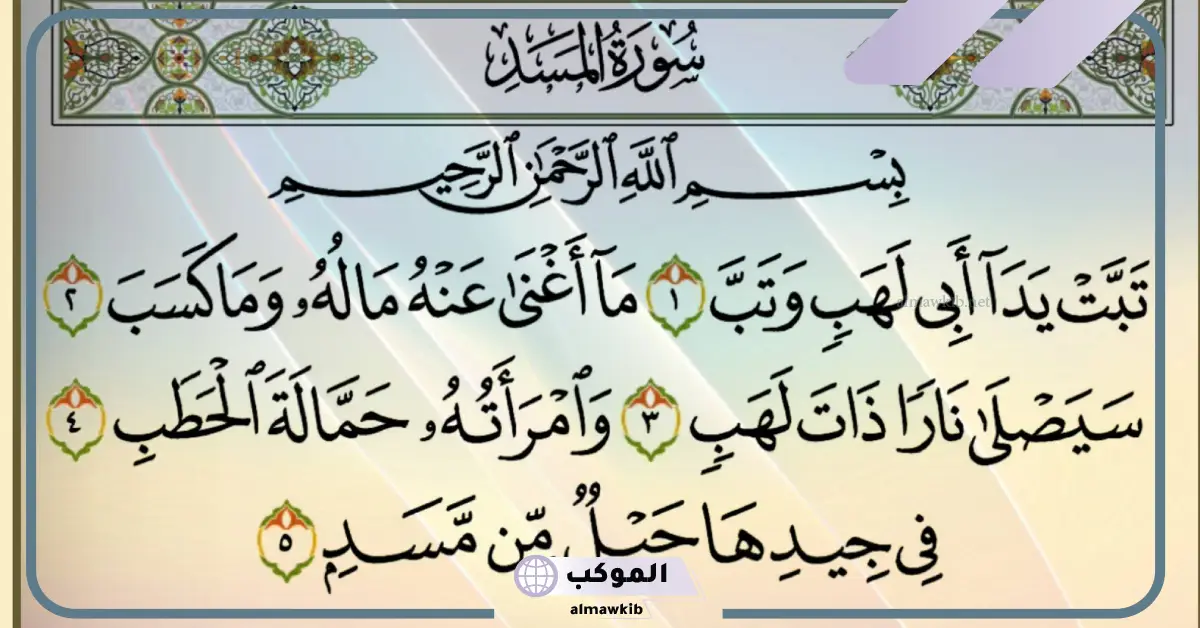 سُورَةُ المَسَدِ
بِسْمِ ٱللَّهِ ٱلرَّحْمَٰنِ ٱلرَّحِيمِ
تَبَّتْ يَدَآ أَبِى لَهَبٍ وَتَبَّ ١ مَآ أَغْنَىٰ عَنْهُ مَالُهُۥ وَمَا كَسَبَ ٢
almawkib.net
سَيَصْلَىٰ نَارًا ذَاتَ لَهَبٍ ٣ وَٱمْرَأَتُهُۥ حَمَّالَةَ ٱلْحَطَبِ ٤
فِى جِيدِهَا حَبْلٌ مِّن مَّسَدٍۭ ٥
الموكب
almawkib